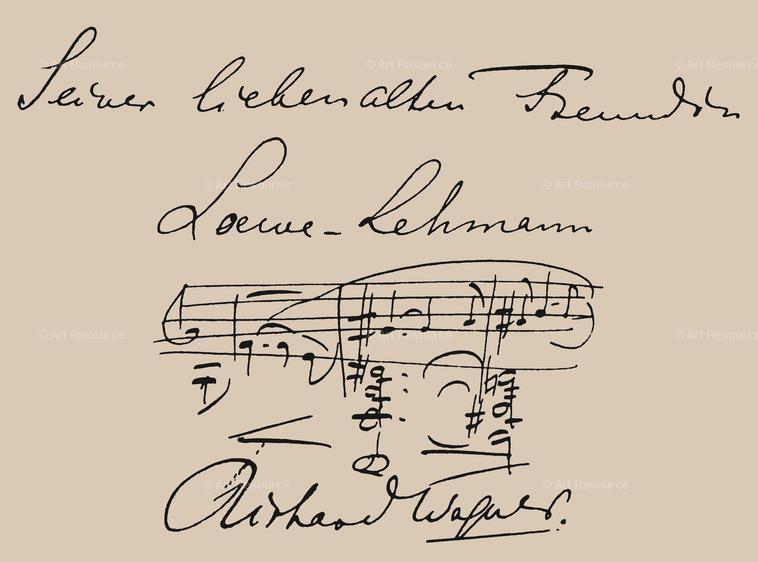 Seiner lieben alten Freundin
Loewe-Lehmann
Richard Wagner.
© Art Resource
© Art Resource
© Art Resource
© Art Resource
© Art Resource
© Art Resource
© Art Resource
© Art Resource
© Art Resource
© Art Resource